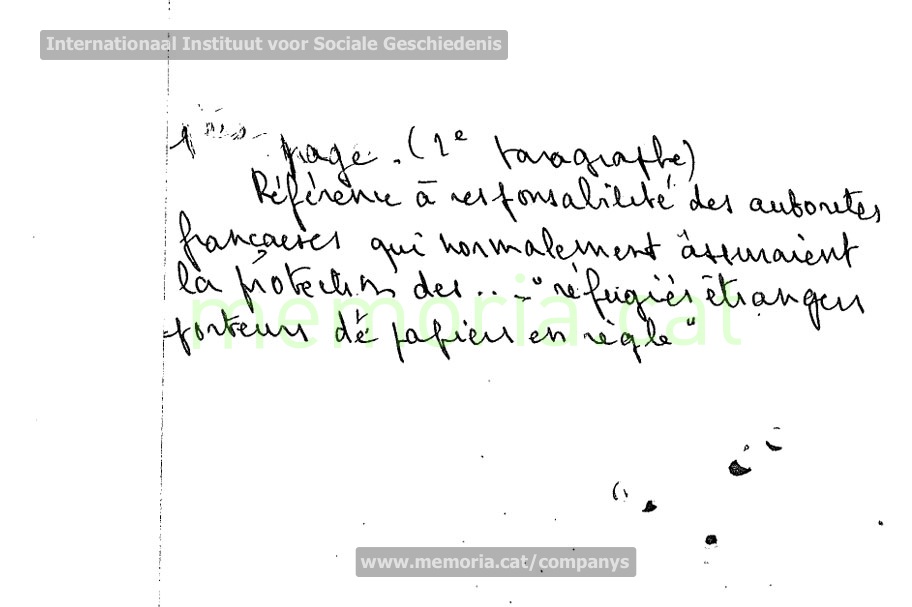 Internationaal Instituut voor Sociale Geschiedenis
1ères page. (2e paragraphe)
Référence à responsabilité des autorités
françaises qui normalement "assuraient
la protection des .. - "réfugiés étrangers
porteurs de papiers en règle"
memoria.cat
www.memoria.cat/companys